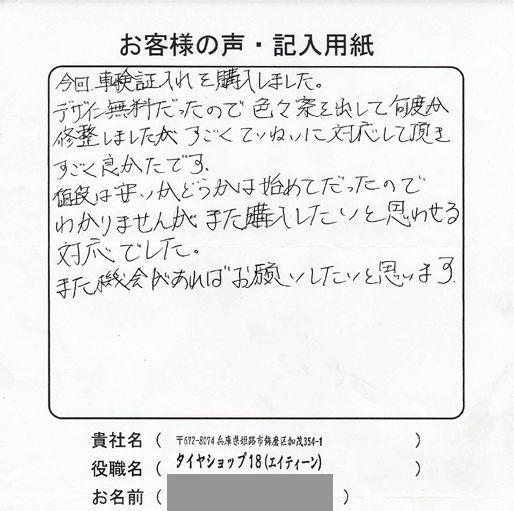 お客様の声・記入用紙
今回、車検証入れを購入しました。
デザイン無料だったので色々案を出して何度か
修整しましたが すごくていねいに対応して頂き
すごく良かたです。
値段は安いかどうかは始めてだったので
わかりませんが また購入したいと思わせる
対応でした。
また機会があればお願いしたいと思います。
貴社名（ 〒672-8074 兵庫県姫路市飾磨区加茂354-1 ）
役職名（ タイヤショップ18(エイティーン) ）
お名前（ ）